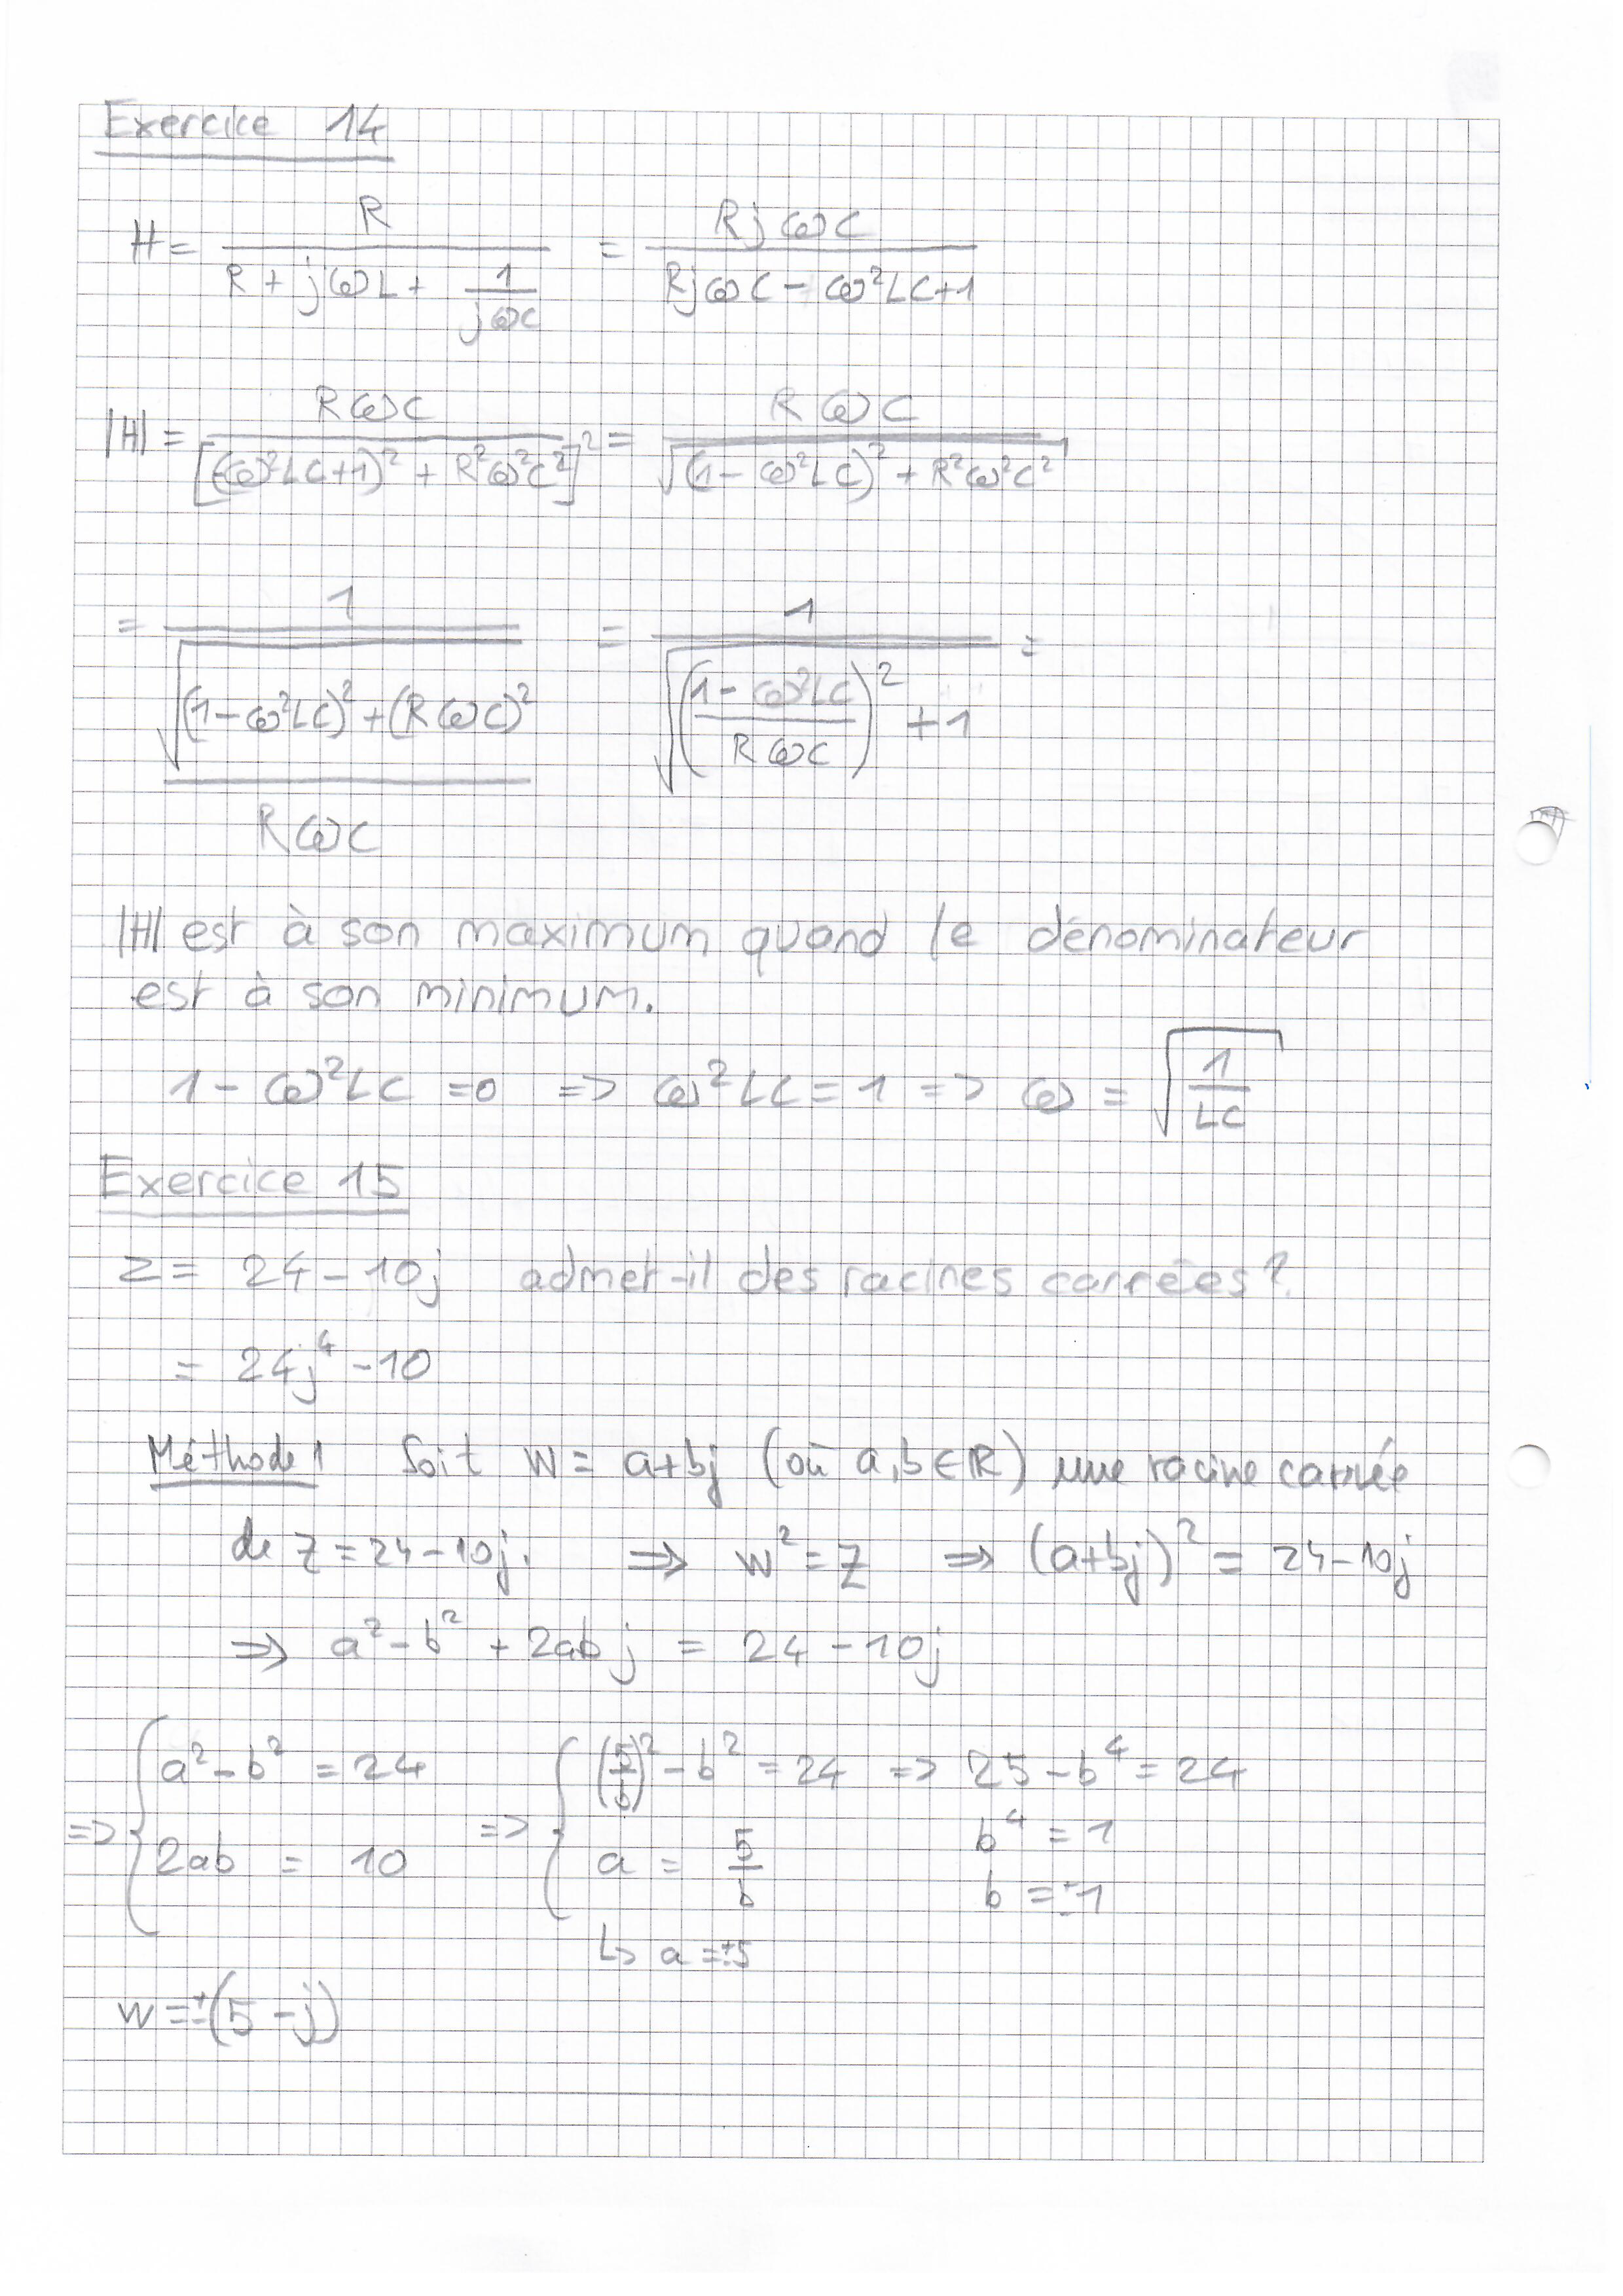 Exercice 14
H = R / (R + jωL + 1/(jωC)) = RjωC / (RjωC - ω²LC+1)
|H| = RωC / [(-ω²LC+1)² + R²ω²C²]² = RωC / √((1 - ω²LC)² + R²ω²C²)
= 1 / (√((1-ω²LC)² + (RωC)²) / RωC) = 1 / √(((1-ω²LC) / RωC)² + 1) =
|H| est à son maximum quand le dénominateur
est à son minimum.
1 - ω²LC = 0 => ω²LC = 1 => ω = √(1/LC)
Exercice 15
z = 24 - 10j admet-il des racines carrées?
= 24j⁴ - 10
Méthode 1 Soit w = a+bj (où a,b ∈ ℝ) une racine carrée
de z = 24-10j. => w² = z => (a+bj)² = 24-10j
=> a² - b² + 2abj = 24 - 10j
=> { a² - b² = 24 => { (5/b)² - b² = 24 => 25 - b⁴ = 24
b⁴ = 1
2ab = 10 a = 5/b
b = ±1
↳ a = ±5
w = ±(5 - j)